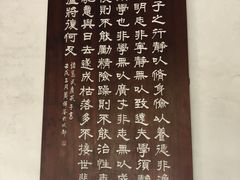 子之行靜以脩身儉以養德非
明志非寧靜無以致遠夫學須
學也非學無以廣才非志無以成
則不能勵精險躁則不能治性
馳意與日去遂成枯落多不接世悲
廬將復何及
諸葛武侯戒子書